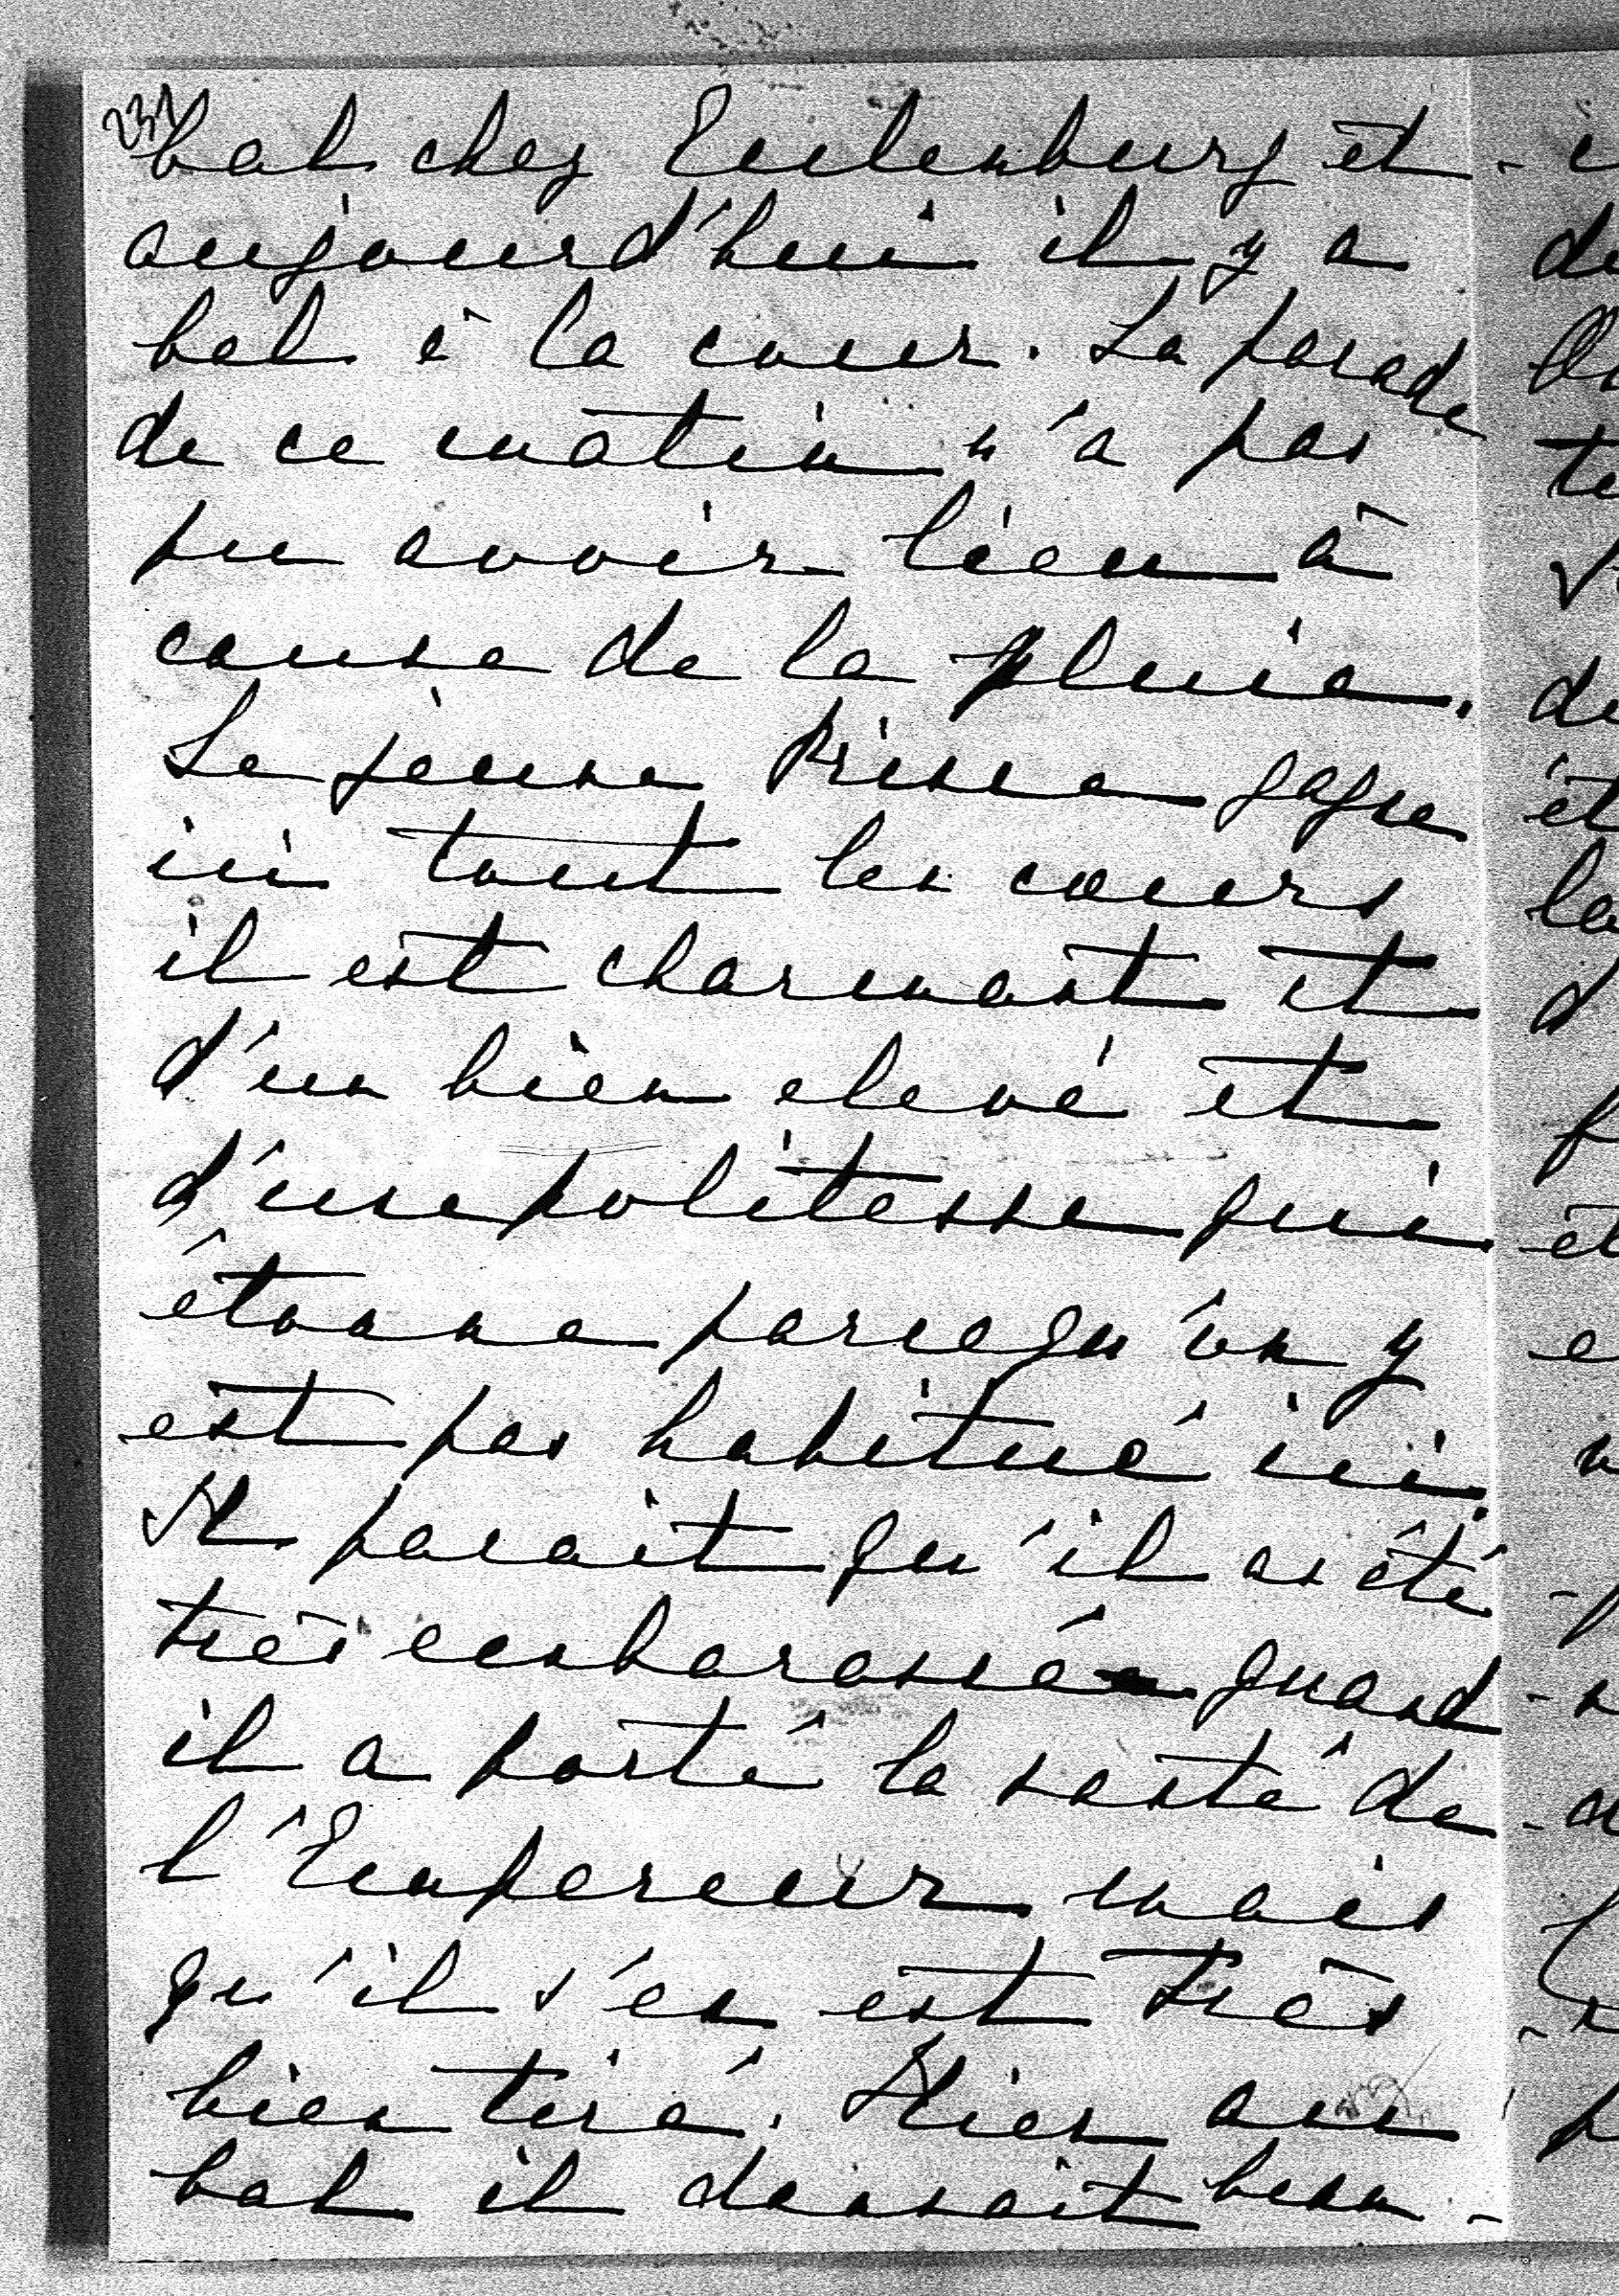 232
bal chez Eulenburg et
aujourd'hui il y a
bal à la cour. La parade
de ce matin n'a pas
pu avoir lieu à
cause de la pluie.
Le jeune Prince gagne
ici tout les cœurs
il est charmant et
d'un bien elevé et
d'une politesse qui
étonne parcequ'on y
est pas habitué ici.
Il parait qu'il a été
très embarassé quand
il a porté la santé de
l'Empereur mais
qu'il s'en est très
bien tiré. Hier au
bal il dansait beau-